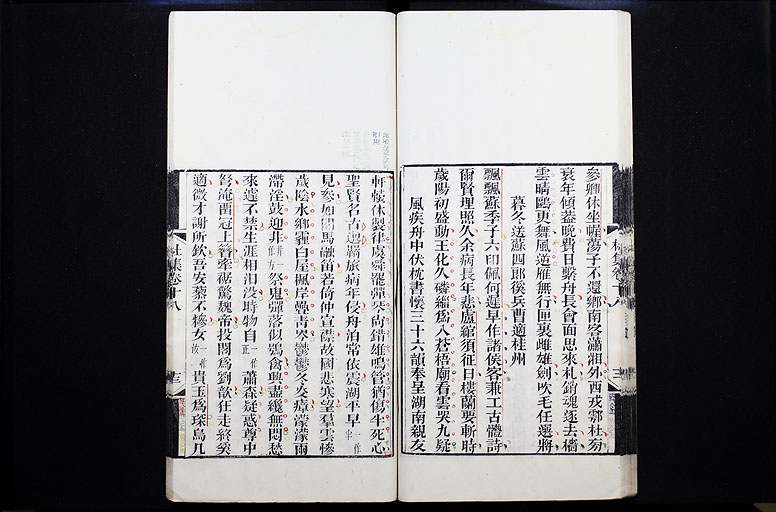 參卿休坐幄蕩子不還鄉南客瀟湘外西戎鄠杜旁
衰年傾蓋晚費日繫舟長會面思來札銷魂逐去檣
雲晴鷗更舞風逆雁無行匣裏雌雄劍吹毛任選將
暮冬送蘇四郎徯兵曹適桂州
飄飄蘇季子六印佩何遲早作諸侯客兼工古體詩
爾賢埋照久余病長年悲盧綰須征日樓蘭要斬時
歲陽初盛動王化久磷緇為入蒼梧廟看雲哭九疑
風疾舟中伏枕書懷三十六韻奉呈湖南親友
軒轅休製律虞舜罷彈琴尚錯雄鳴管猶傷半死心
聖賢名古邈羈旅病年侵舟泊常依震湖平早一作半
見參如聞馬融笛若倚仲宣襟故國悲寒望羣雲慘
歲陰水鄉霾白屋楓岸疊青岑鬱鬱冬炎瘴濛濛雨
滯淫鼓迎非一作方祭鬼彈落似鴞禽興盡纔無悶愁
來遽不禁生涯相汩沒時物自一作正蕭森疑惑尊中
弩淹留冠上簪牽裾驚魏帝投閣為劉歆狂走終奚
適微才謝所欽吾安藜不糝女一作汝貴玉為琛烏几
杜集卷十八
杜集卷十八